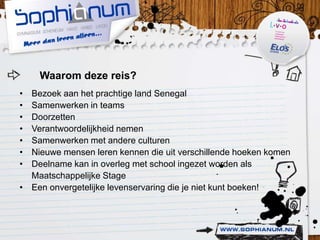 Sophianum
Meer dan leren alleen...
L•V•O
ELOS
Waarom deze reis?
• Bezoek aan het prachtige land Senegal
• Samenwerken in teams
• Doorzetten
• Verantwoordelijkheid nemen
• Samenwerken met andere culturen
• Nieuwe mensen leren kennen die uit verschillende hoeken komen
• Deelname kan in overleg met school ingezet worden als
Maatschappelijke Stage
• Een onvergetelijke levenservaring die je niet kunt boeken!
WWW.SOPHIANUM.NL